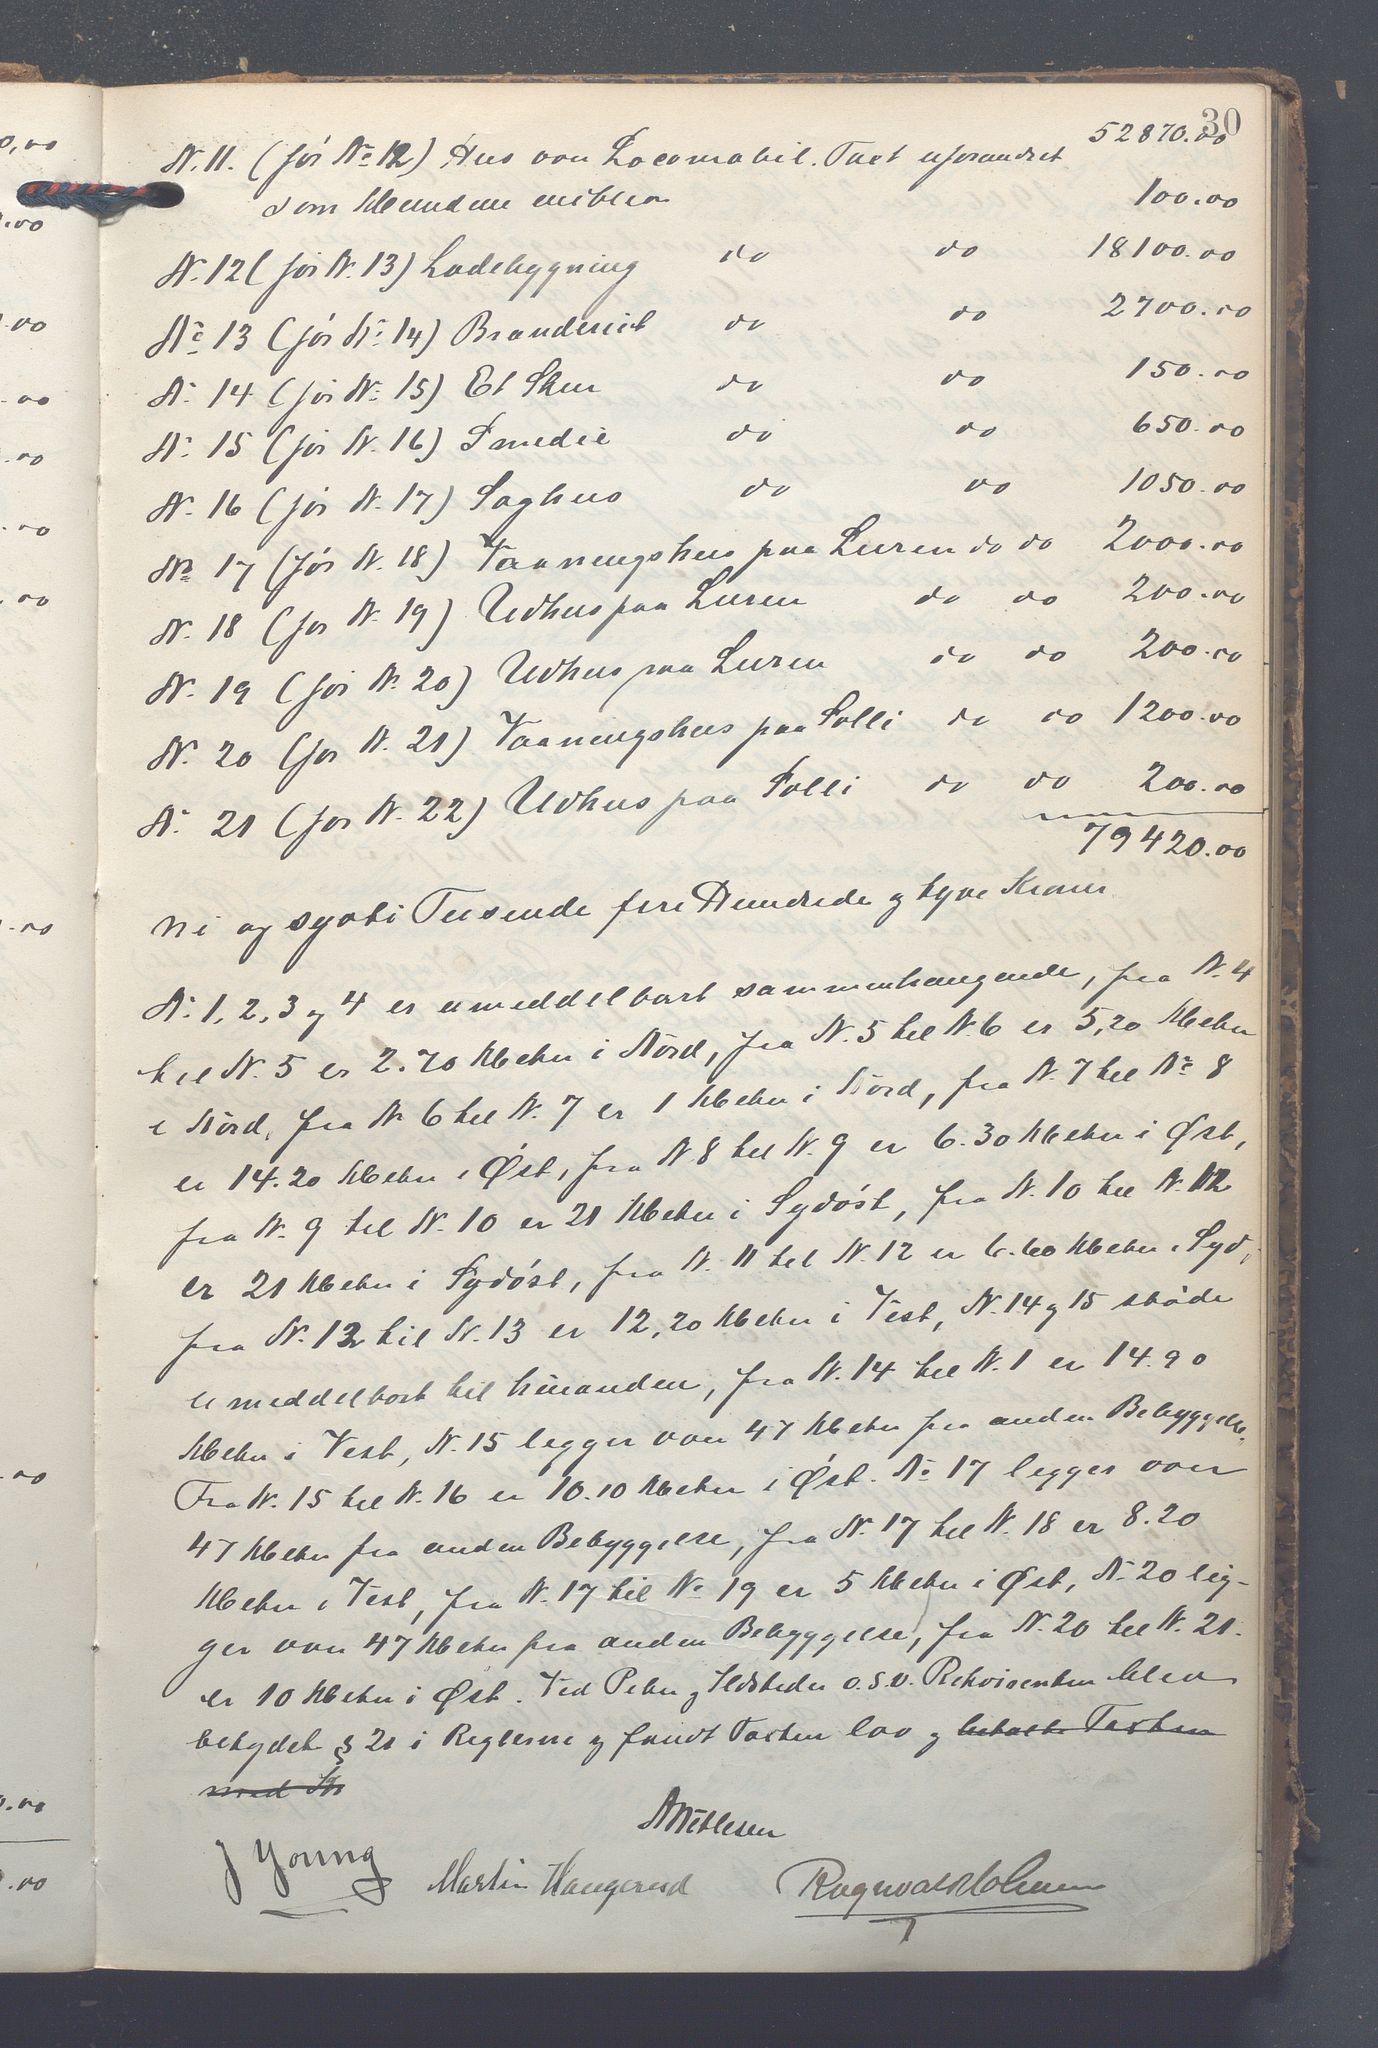 30
52870.00
N. 11. (før No 12) Hus over Locomobil. Taxt uforandret
som 100.00
N. 12 (før N. 13) Ladebygning do do 18100.00
No 13 (før No 14) Branderiet do do 2700.00
N. 14 (før No 15) Et Skur do do 150.00
N. 15 (før N. 16) Smedie do do 650.00
N. 16 (før N. 17) Saghus do do 1050.00
No 17 (før N. 18) Vaaningshus paa Luren do do 2000.00
N. 18 (før N. 19) Udhus paa Luren do do 200.00
N. 19 (før N. 20) Udhus paa Luren do do 200.00
N. 20 (før N. 21) Vaaningshus paa Solli do do 1200.00
N. 21 (før N. 22) Udhus paa Solli do do 200.00
79420.00
ni og sytti Tusende fire Hundrede og tyve Kroner
N. 1, 2, 3 og 4 er umeddelbart sammenhængende, fra N. 4
til N. 5 er 2.70 Meter i Nord, fra N. 5 til N. 6 er 5,20 Meter
i Nord, fra N 6 til N. 7 er 1 Meter i Nord, fra N. 7 til No 8
er 14.20 Meter i Øst, fra N 8 til N. 9 er 6.30 Meter i Øst,
fra N. 9 til N. 10 er 21 Meter i Sydøst, fra N. 10 til N. 12
er 21 Meter i Sydøst, fra N. 11 til N. 12 er 6.60 Meter i Syd,
fra N. 12 til N. 13 er 12,20 Meter i Vest, N. 14 og 15 støder
umeddelbart til hinanden, fra N. 14 til N. 1 er 14.90
Meter i Vest, N. 15 legger over 47 Meter fra anden Bebyggelse.
Fra N. 15 til N. 16 er 10.10 Meter i Øst. No 17 legger over
47 Meter fra anden Bebyggelse, fra N. 17 til N. 18 er 8.20
Meter i Vest, fra N. 17 til No 19 er 5 Meter i Øst, N. 20 lig-
ger over 47 Meter fra anden Bebyggelse, fra N. 20 til N. 21.
er 10 Meter i Øst. Ved Piber og Ildsteder o.s.v. Rekvirenten blev
betydet § 21 i Reglerne og fandt Taxten lav og betalte Taxten
med Kr
A Netlesen
J Young Martin Haugerud Ragnvald Holmsen